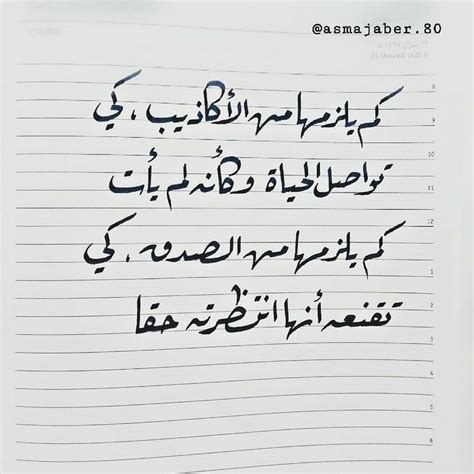 @asmajaber.80
كم يلزمها من الأكاذيب، كي
تواصل الحياة وكأنه لم يأت
كم يلزمها من الصدق، كي
تقنعه أنها انتظرته حقا
8
9
10
11
12
1
2
3
4
5
6